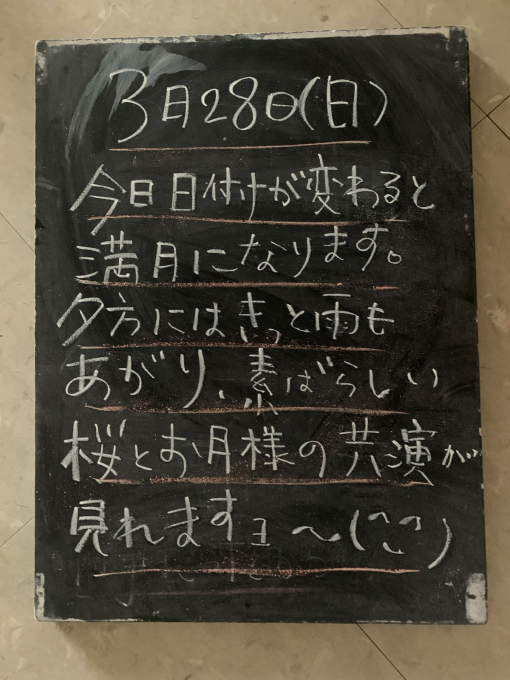 3月28日(日)
今日日付けが変わると
満月になります。
夕方にはきっと雨も
あがり、素ばらしい
桜とお月様の共演が
見れますョ〜(^^)